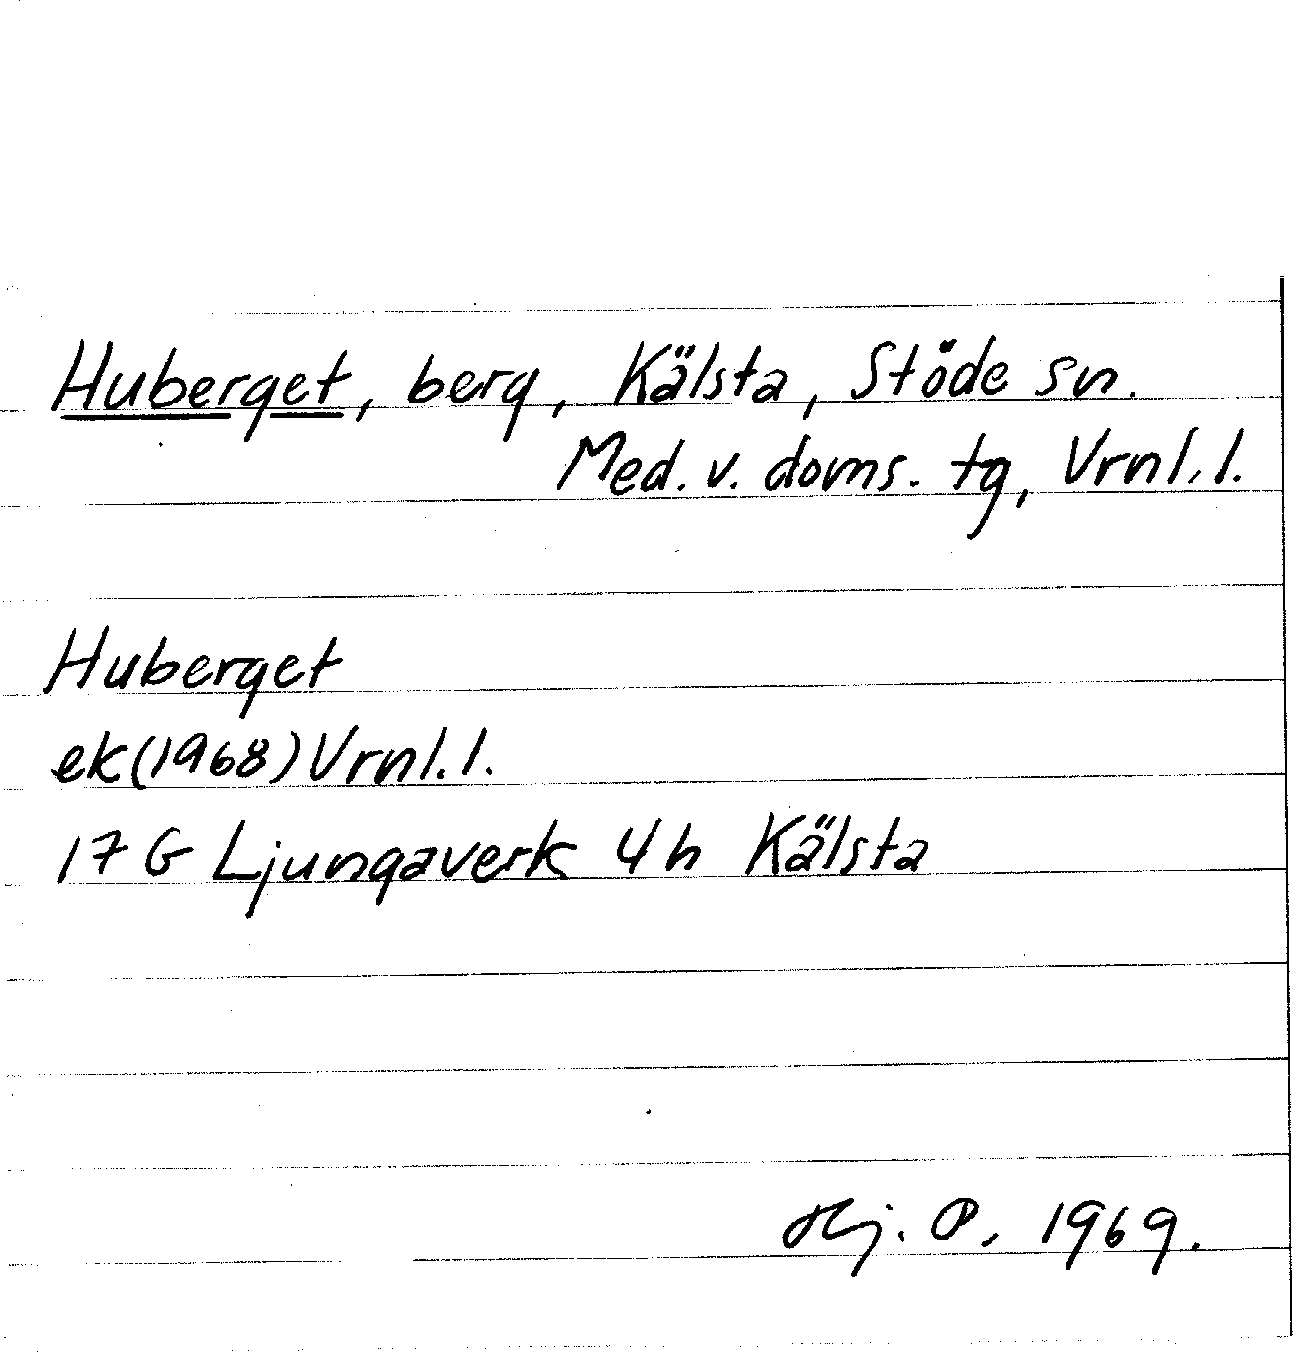 Huberget, berg, Kälsta, Stöde sn.
Med. v. doms. tg, Vrnl. l.
Huberget
ek (1968) Vrnl. l.
17 G Ljungaverk 4 h Kälsta
Hj. P. 1969.